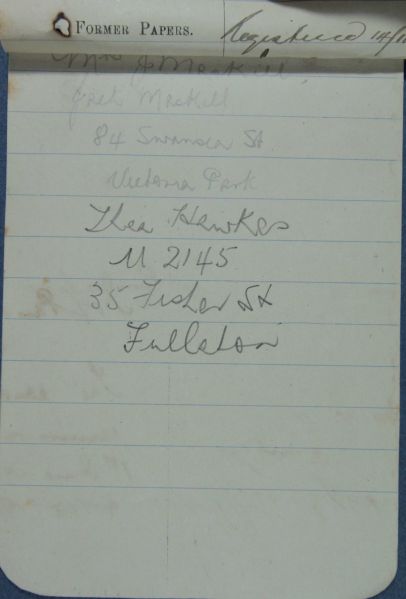 FORMER PAPERS. Registered 14/
Mrs J Mackill
Jack Mackill
84 Swansea St
Victoria Park
Thea Hawkes
U 2145
35 Fisher St
Fullston